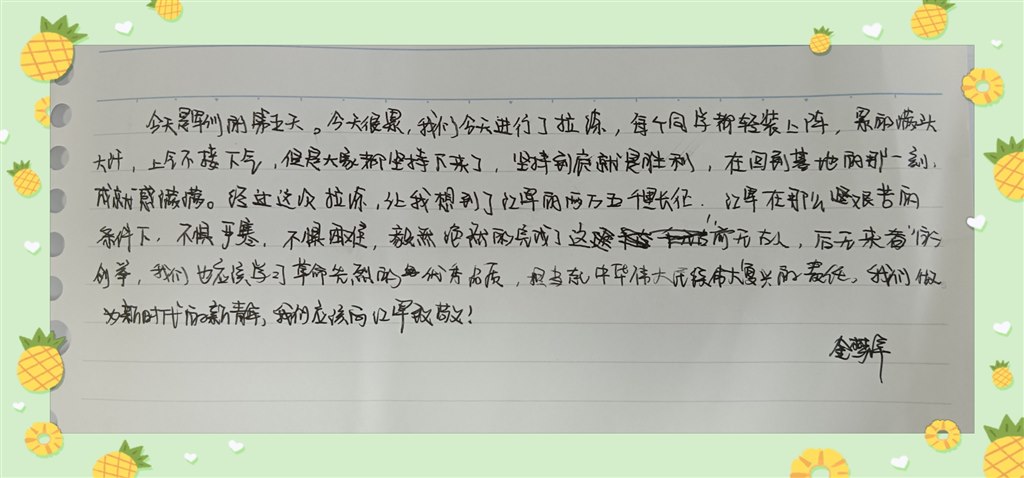 今天是军训的第五天。今天很累,我们今天进行了拉练,每个同学都轻装上阵,累的满头
大汗,上气不接下气,但是大家都坚持下来了,坚持到底就是胜利,在回到基地的那一刻,
成就感满满。经过这次拉练,让我想到了红军的两万五千里长征.红军在那么艰苦的
条件下,不惧严寒,不惧困难,毅然决然的完成了这"前无古人,后无来者"的
创举,我们也应该学习革命先烈的优秀品质,担当起中华伟大民族伟大复兴的责任,我们做
为新时代的新青年,我们应该向红军致敬!
金